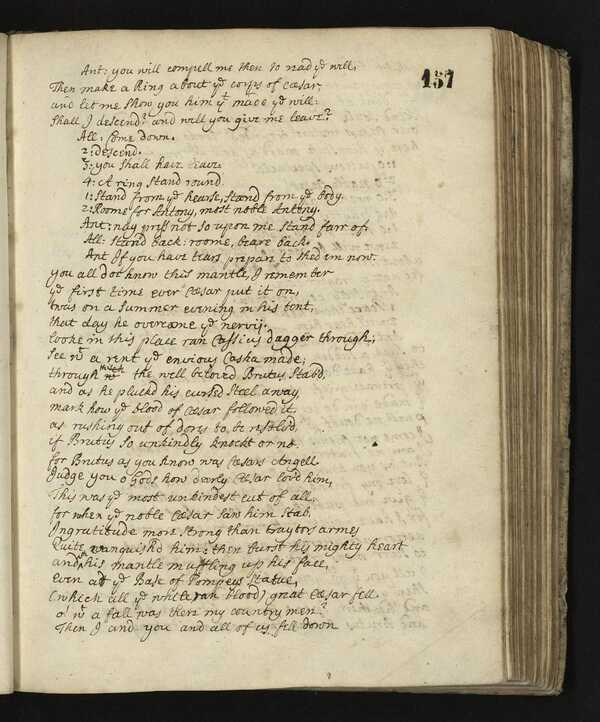 157
Ant: you will compell me then to read yᵉ will,
Then make a Ring about yᵉ corps of Cæsar,
and let me show you him yᵗ made yᵉ will:
Shall I descend? and will you give me leave?
All: Come down.
2: descend.
3: you shall have leave.
4: A ring stand round
1: Stand from yᵉ hearse, stand from yᵉ body.
2: Roome for Antony, most noble Antony.
Ant: nay press not so upon me stand farr of,
All: Stand back: roome, beare back.
Ant If you have tears prepare to shed em now.
you all doe know this mantle, I remember
yᵉ first time ever Cæsar put it on,
twas on a Summer evening in his tent,
that day he overcame yᵉ nervij.
looke in this place ran Cassius dagger through;
See wᵗ a rent yᵉ envious Caska made;
through this the well beloved Brutus Stabd,
and as he pluckd his cursed Steel away,
mark how yᵉ blood of Cæsar followed it,
as rushing out of dores to be resolvd,
if Brutus so unkindly knockt or no.
for Brutus as you know was Cæsars Angell
Judge you o Gods how dearly Cæsar lov'd him,
This was yᵉ most unkindest cut of all,
for when yᵉ noble Cæsar saw him Stab,
Ingratitude more strong than traytors armes
Quite vanquish'd him: then burst his mighty heart
and his mantle muffling up his face,
Even at yᵉ Base of Pompeys Statue,
(which all yᵉ while ran blood) great Cæsar fell
o wᵗ a fall was there my country men?
Then I and you and all of us fell down